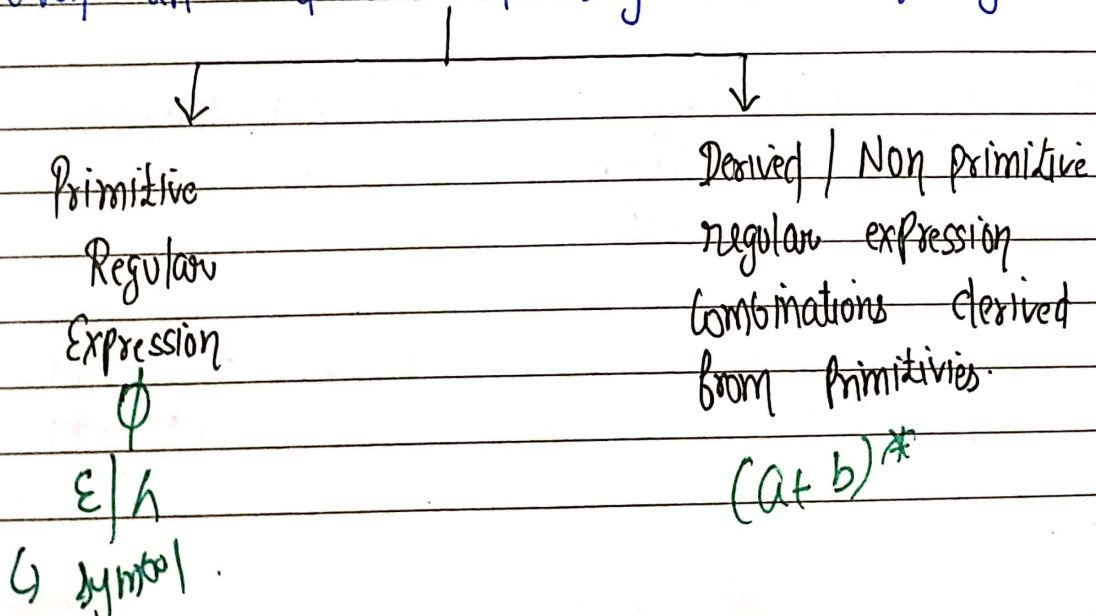 Primitive
Regular
Expression
ϕ
ε/λ
↳ symbol.
Derived / Non primitive
regular expression
Combinations derived
from Primitivies.
(a+b)*